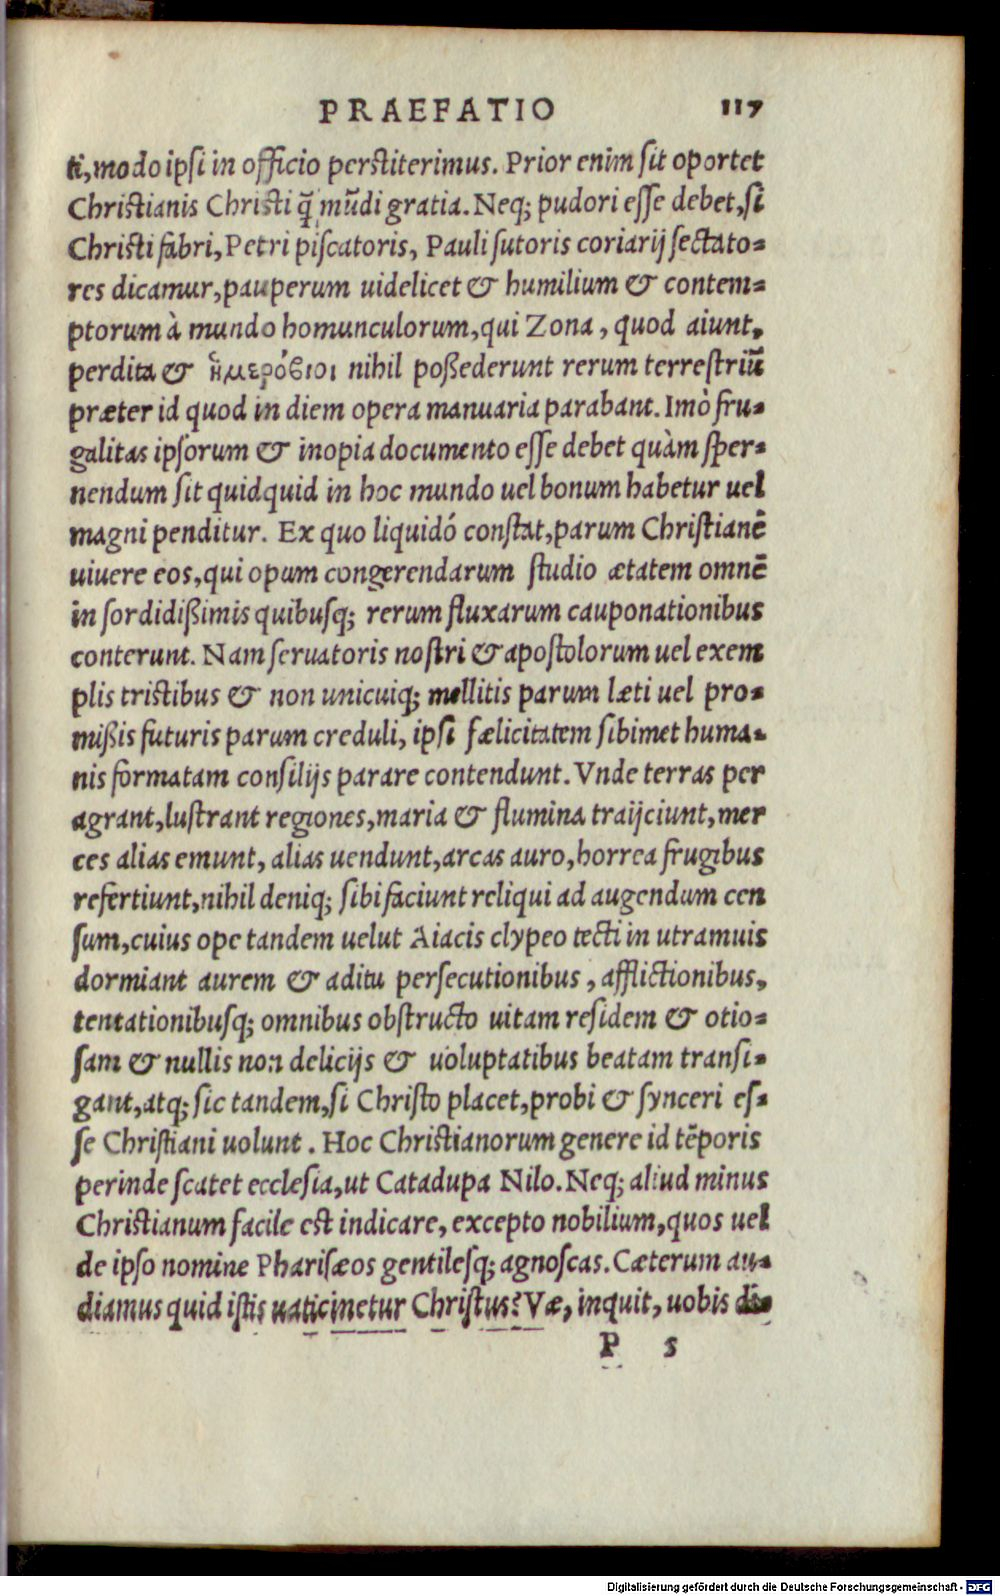 PRAEFATIO 117
ti, modo ipsi in officio perstiterimus. Prior enim sit oportet
Christianis Christi q̃ mũdi gratia. Neq; pudori esse debet, si
Christi fabri, Petri piscatoris, Pauli sutoris coriarij sectato-
res dicamur, pauperum uidelicet & humilium & contem-
ptorum à mundo homunculorum, qui Zona, quod aiunt,
perdita & ἡμερόβιοι nihil poßederunt rerum terrestriũ
præter id quod in diem opera manuaria parabant. Imò fru-
galitas ipsorum & inopia documento esse debet quàm sper-
nendum sit quidquid in hoc mundo uel bonum habetur uel
magni penditur. Ex quo liquidó constat, parum Christianẽ
uiuere eos, qui opum congerendarum studio ætatem omnẽ
in sordidißimis quibusq; rerum fluxarum cauponationibus
conterunt. Nam seruatoris nostri & apostolorum uel exem
plis tristibus & non unicuiq; mellitis parum læti uel pro-
mißis futuris parum creduli, ipsi fælicitatem sibimet huma-
nis formatam consilijs parare contendunt. Vnde terras per
agrant, lustrant regiones, maria & flumina traijciunt, mer
ces alias emunt, alias uendunt, arcas auro, horrea frugibus
refertiunt, nihil deniq; sibi faciunt reliqui ad augendum cen
sum, cuius ope tandem uelut Aiacis clypeo tecti in utramuis
dormiant aurem & aditu persecutionibus, afflictionibus,
tentationibusq; omnibus obstructo uitam residem & otio-
sam & nullis non delicijs & uoluptatibus beatam transi-
gant, atq; sic tandem, si Christo placet, probi & synceri es-
se Christiani uolunt. Hoc Christianorum genere id tẽporis
perinde scatet ecclesia, ut Catadupa Nilo. Neq; aliud minus
Christianum facile est indicare, excepto nobilium, quos uel
de ipso nomine Pharisæos gentilesq; agnoscas. Cæterum au-
diamus quid istis uaticinetur Christus? Væ, inquit, uobis di-
P 5
Digitalisierung gefördert durch die Deutsche Forschungsgemeinschaft - DFG